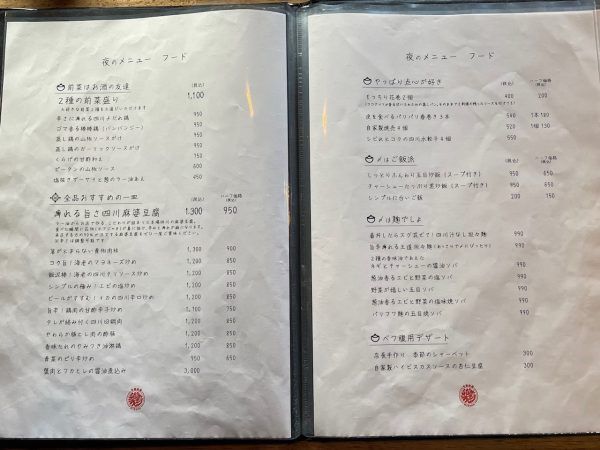 夜のメニュー フード
前菜はお酒の友達 (税込)
2種の前菜盛り 1,100
辛さに痺れる四川よだれ鶏 950
ゴマ香る棒棒鶏(バンバンジー) 950
蒸し鶏の山椒ソースがけ 950
蒸し鶏のガーリックソースがけ 950
くらげの甘酢和え 950
ピータンの山椒ソース 600
塩味ザーサイと葱のラー油あえ 450
全品おすすめの一皿 (税込) ハーフ価格 (税込)
痺れる旨さ四川麻婆豆腐 1,300 950
箸が止まらない青椒肉絲 1,200 900
コク旨!海老のマヨネーズ炒め 1,200 850
飯泥棒!海老の四川チリソース炒め 1,200 850
シンプルの極み!エビの塩炒め 1,200 850
ビールがすすむ!イカの四川辛口炒め 1,200 850
旨辛!鶏肉の甘酢辛子炒め 1,200 850
タレが絡み付く四川回鍋肉 1,200 850
やわらか豚ヒレ肉の酢豚 1,200 850
香味だれのやみつき油淋鶏 1,200 850
青菜のピリ辛炒め 950 650
蟹肉とフカヒレの醤油煮込み 3,000
夜のメニュー フード
やっぱり点心が好き (税込) ハーフ価格 (税込)
もっちり花巻2個 400 200
皮を食べるパリパリ春巻き3本 580 1本180
自家製焼売4個 520 1個130
シビれとコクの四川水餃子4個 540
〆はご飯派 (税込) ハーフ価格 (税込)
しっとりふんわり五目炒飯(スープ付き) 950 650
チャーシューたっぷり黒炒飯(スープ付き) 950 650
シンプルに白いご飯 200
〆は麺でしょ (税込)
2種の香味油であえた
ネギとチャーシューの醤油ソバ 990
葱油香るエビと野菜の塩ソバ 990
野菜が嬉しい五目ソバ 990
葱油香るエビと野菜の塩味焼ソバ 990
パリフワ麺の五目焼ソバ 990
ベツ腹用デザート (税込)
店長手作り 季節のシャーベット 300
自家製ハイビスカスソースの杏仁豆腐 300